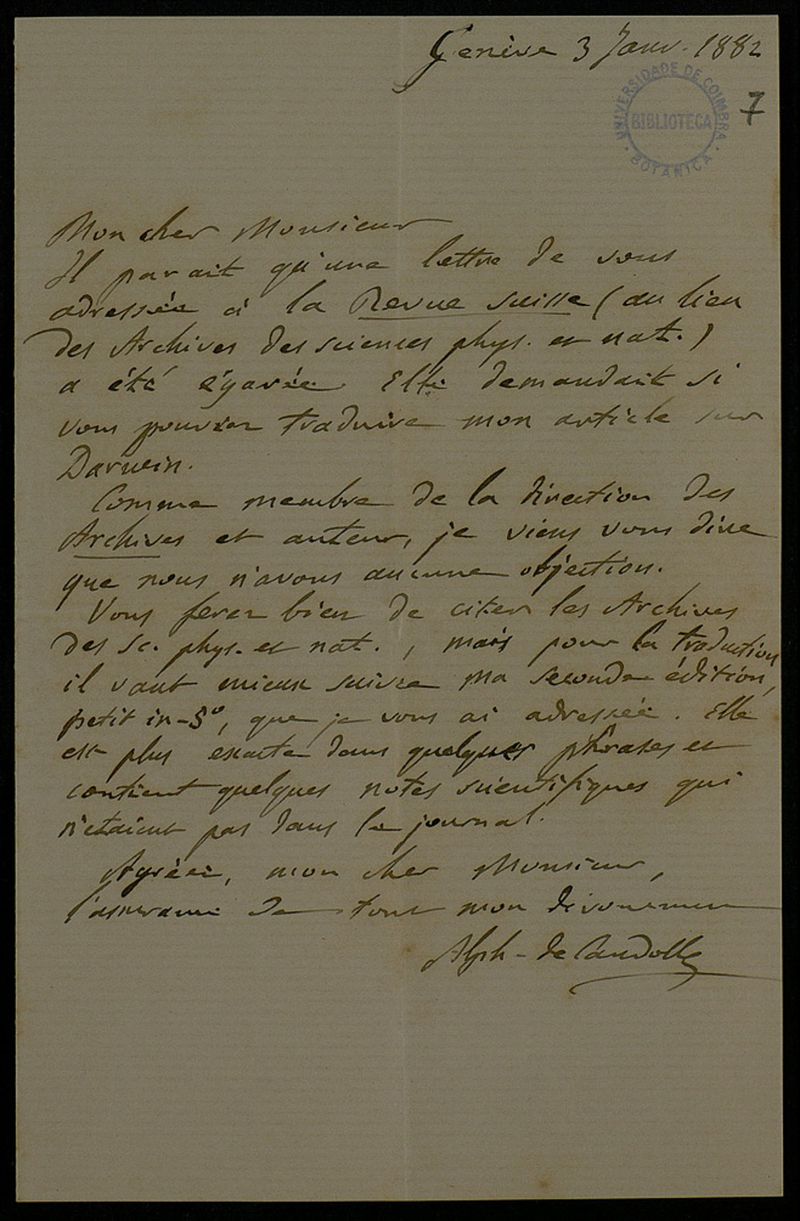 Genève 3 Janv. 1882
UNIVERSIDADE DE COIMBRA
BIBLIOTECA
BOTANICA
7
Mon cher Monsieur
Il parait qu'une lettre de vous
adressée à la Revue suisse (au lieu
des Archives des sciences phys. et nat.)
a été égarée. Elle demandait si
vous pouvez traduire mon article sur
Darwin.
Comme membre de la direction des
Archives et auteur, je viens vous dire
que nous n'avons aucune objection.
Vous ferez bien de citer les Archives
des sc. phys. et nat., mais pour la traduction
il vaut mieux suivre ma seconde édition,
petit in-8°, que je vous ai adressée. Elle
est plus exacte dans quelques phrases et
contient quelques notes scientifiques qui
n'étaient pas dans le journal.
Agréez, mon cher Monsieur,
l'assurance de tout mon dévouement
Alph. de Candolle